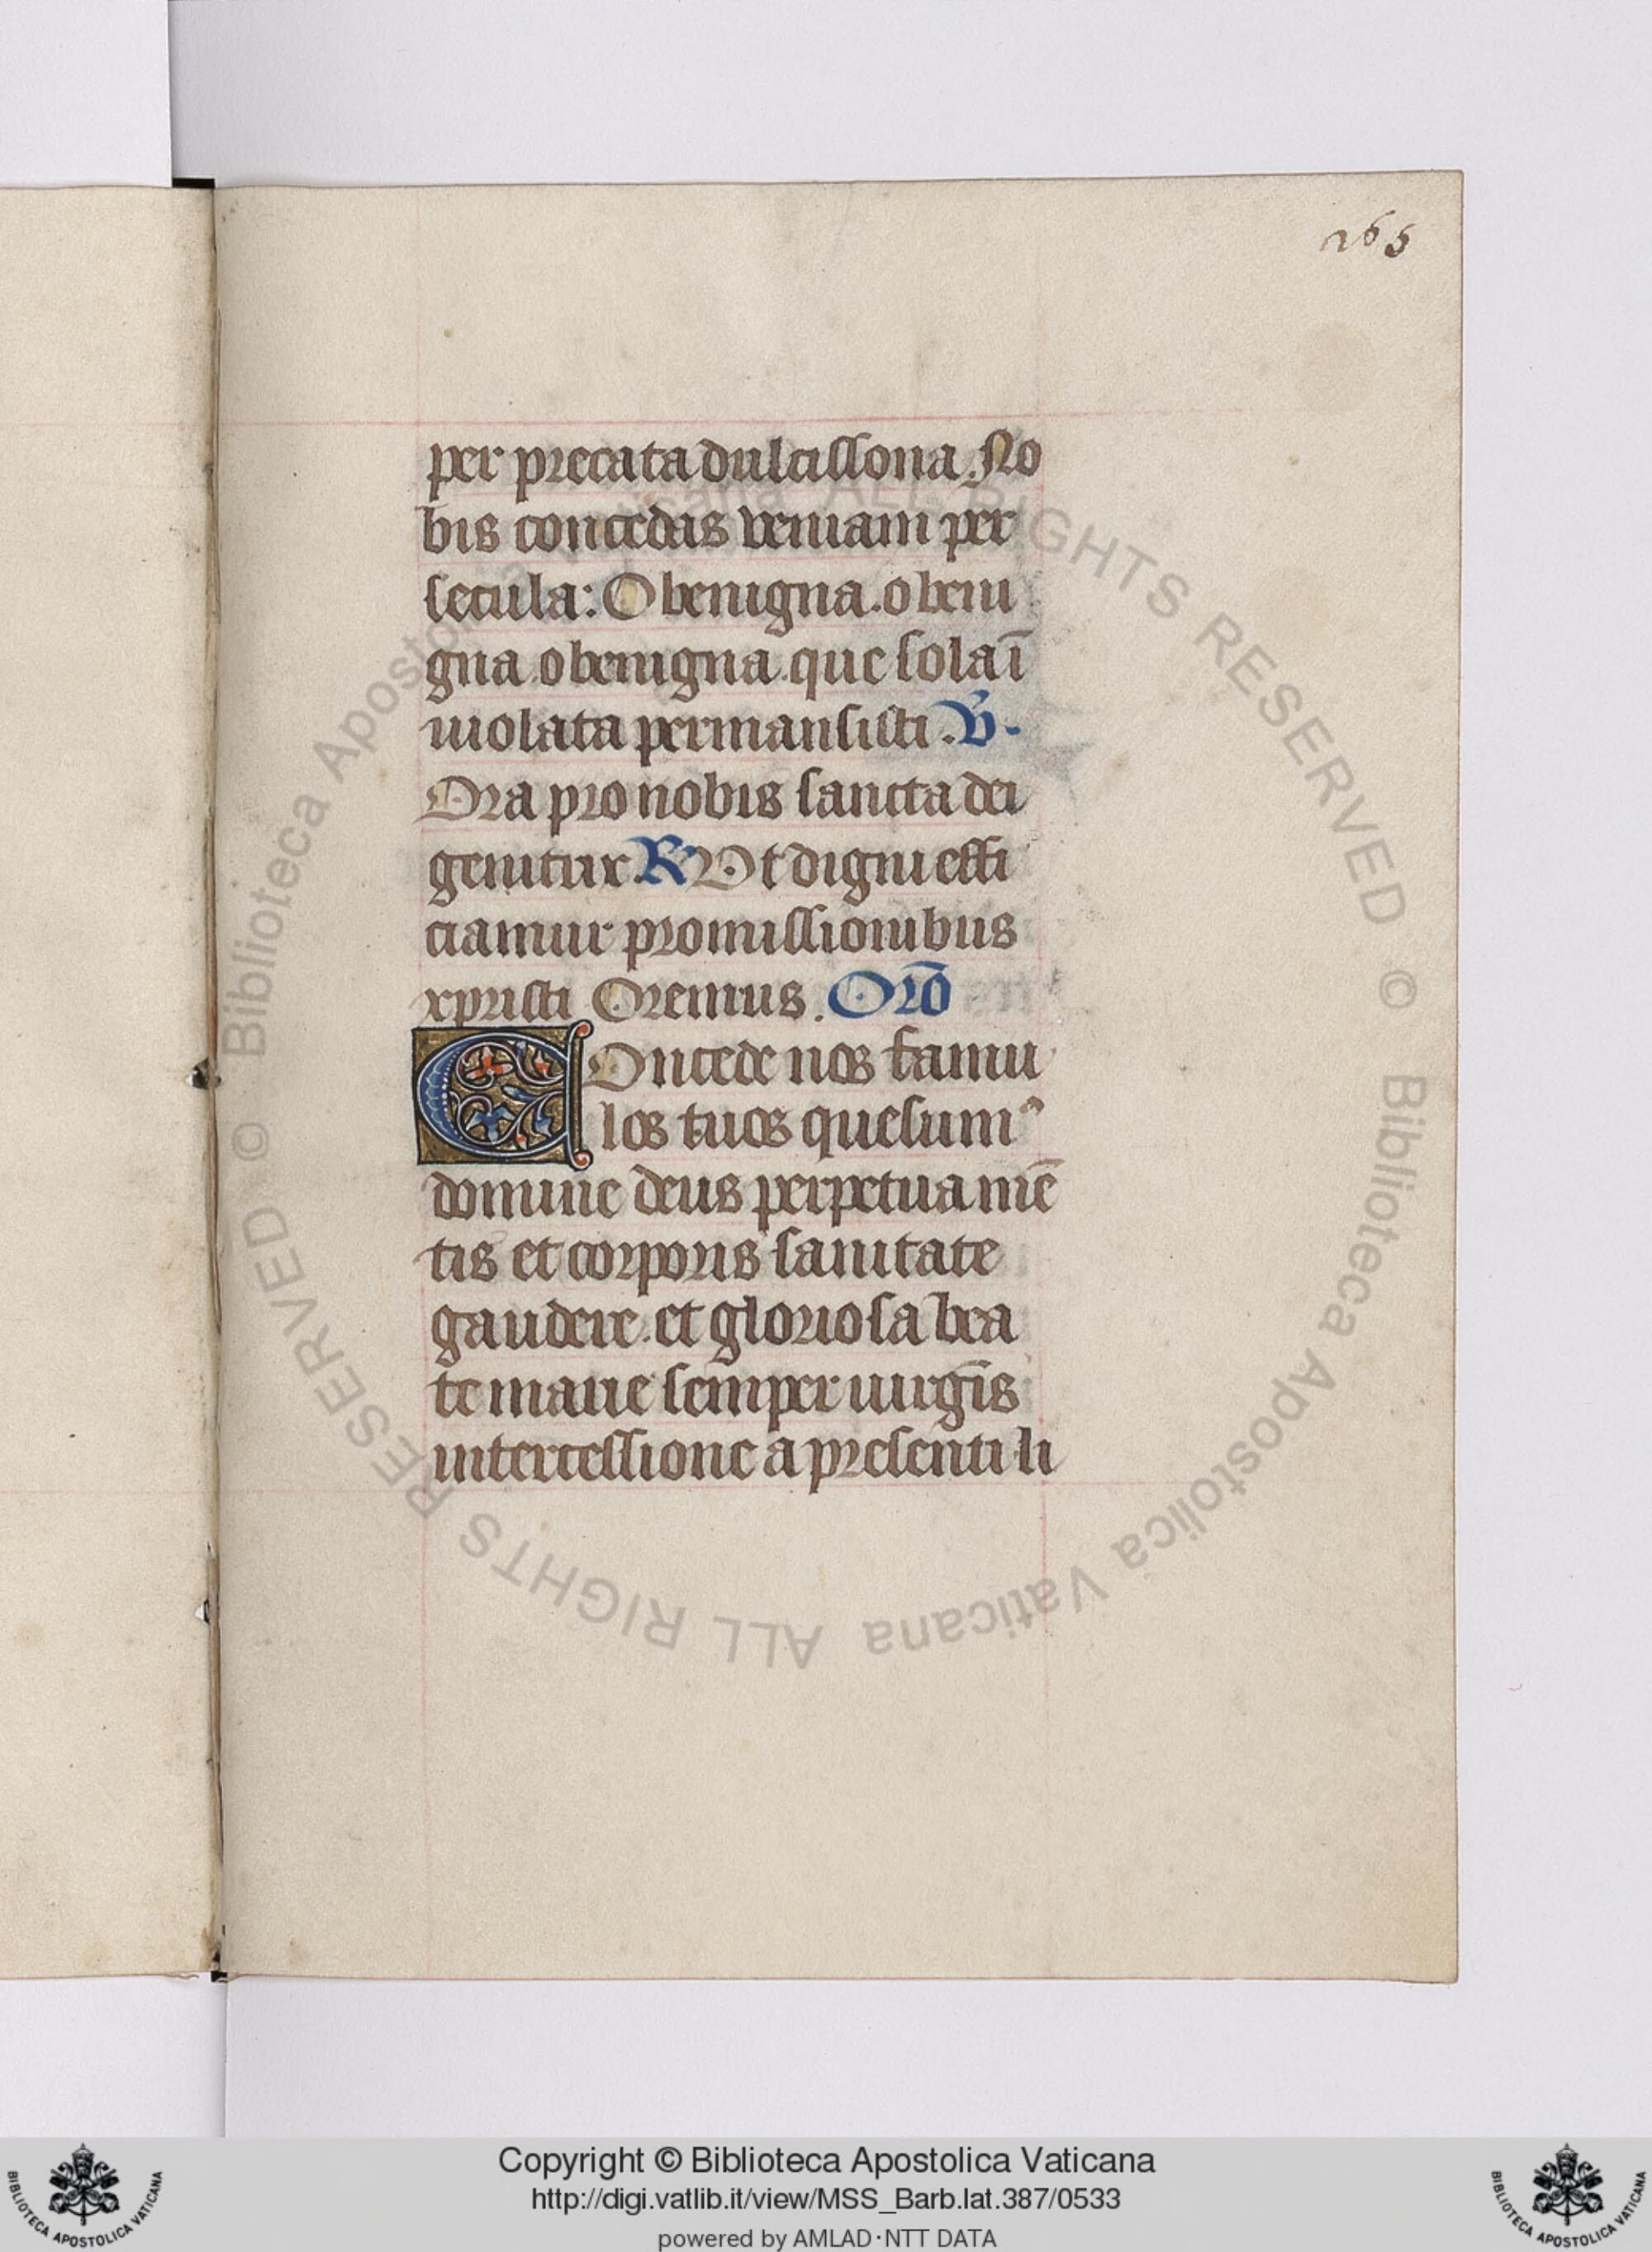 265
per precata dulcissona. No
bis concedas veniam per
secula: O benigna. o beni
gna. o benigna. que sola ī
uiolata permansisti. V̄.
Ora pro nobis sancta dei
genitrix. R Vt digni effi
ciamur promissionibus
xpristi Oremus. Orō
Concede nos famu
los tuos quesumꝰ
domine deus perpetua mē
tis et corporis sanitate
gaudere. et gloriosa bea
te marie semper uirgīs
intercessione a presenti li
© Biblioteca Apostolica Vaticana ALL RIGHTS RESERVED © Biblioteca Apostolica Vaticana ALL RIGHTS RESERVED
Copyright © Biblioteca Apostolica Vaticana
http://digi.vatlib.it/view/MSS_Barb.lat.387/0533
powered by AMLAD·NTT DATA
BIBLIOTECA APOSTOLICA VATICANA
BIBLIOTECA APOSTOLICA VATICANA